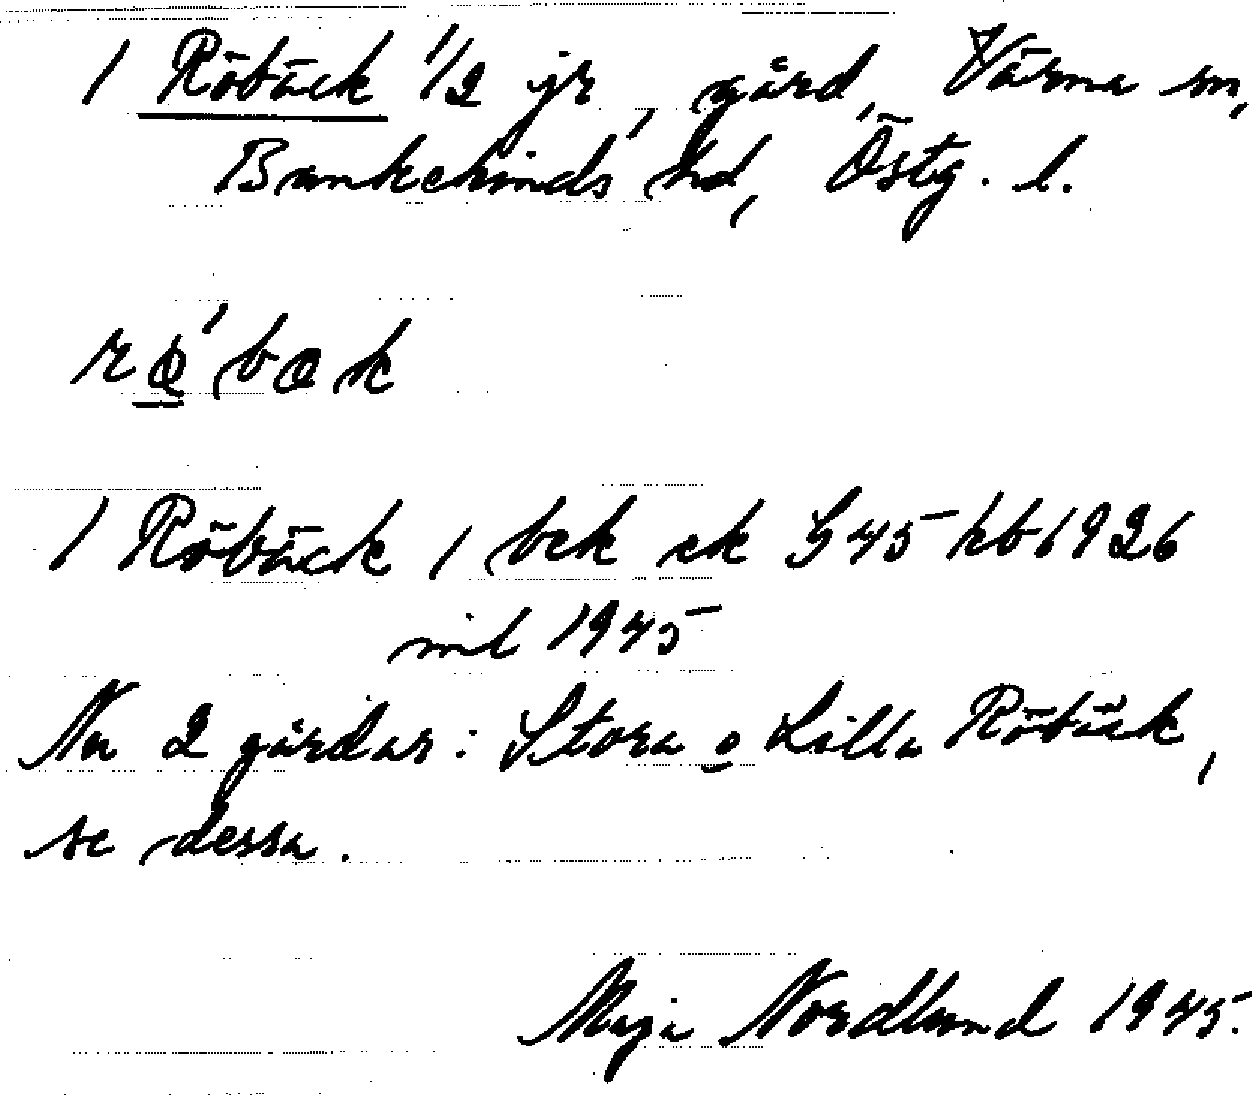 1 Röbäck 1/2 jr, gård, Värna sn,
Bankekinds hd, Östg. l.
rø'bæk
1 Röbäck 1 bek ek G45 hb 1926
mil 1945
Nu 2 gårdar: Stora o Lilla Röbäck,
se dessa.
Maja Nordlund 1945.